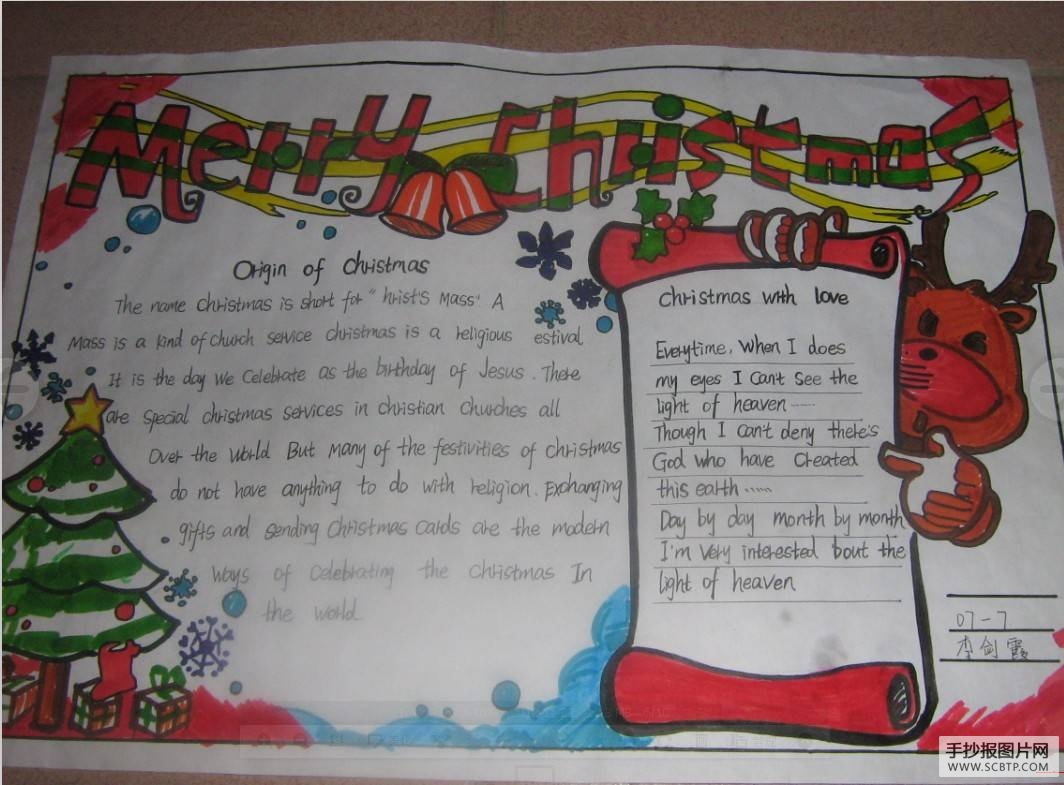 Merry Christmas
Origin of Christmas
The name christmas is short for "hrist's Mass" A
Mass is a kind of church service christmas is a religious estival
It is the day we celebrate as the birthday of Jesus. There
are special christmas services in christian churches all
Over the world But many of the festivities of christmas
do not have anything to do with religion. Exchanging
gifts and sending christmas cards are the modern
ways of celebrating the christmas In
the world
christmas with love
Everytime, when I does
my eyes I can't see the
light of heaven ......
Though I can't deny there's
God who have created
this earth ......
Day by day month by month
I'm very interested 'bout the
light of heaven
07-7
李剑霞
手抄报图片网
WWW.SCBTP.COM